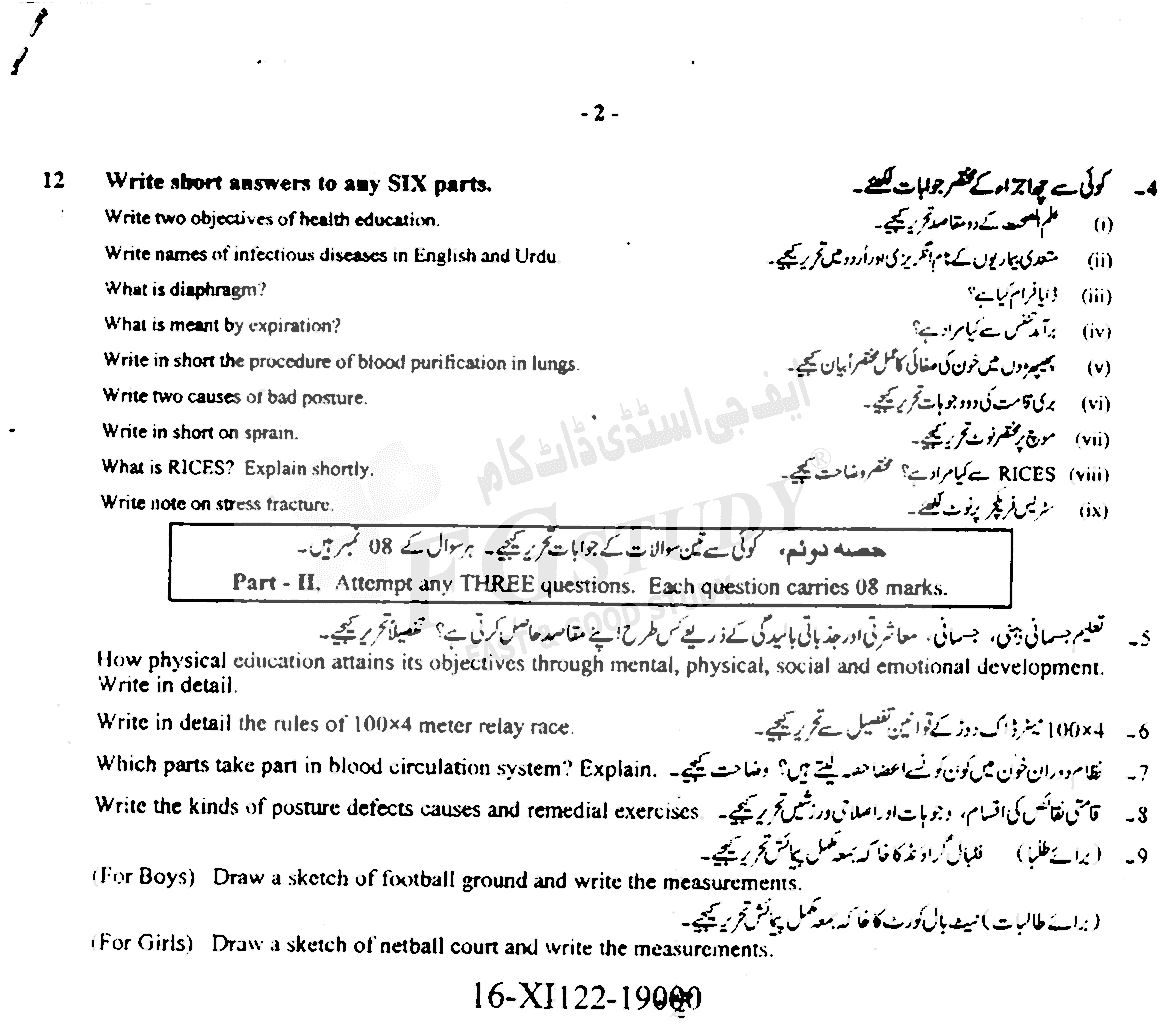 - 2 -
12 Write short answers to any SIX parts. کوئی سے چھ اجزاء کے مختصر جوابات لکھئے۔ 4۔
Write two objectives of health education. علم الصحت کے دو مقاصد تحریر کیجیے۔ (i)
Write names of infectious diseases in English and Urdu. متعدی بیماریوں کے نام انگریزی اور اُردو میں تحریر کیجیے۔ (ii)
What is diaphragm? ڈایا فرام کیا ہے؟ (iii)
What is meant by expiration? برآمد تنفس سے کیا مراد ہے؟ (iv)
Write in short the procedure of blood purification in lungs. پھیپھڑوں میں خون کی صفائی کا عمل مختصراً بیان کیجیے۔ (v)
Write two causes of bad posture. بری قامت کی دو وجوہات تحریر کیجیے۔ (vi)
Write in short on sprain. موچ پر مختصر نوٹ تحریر کیجیے۔ (vii)
What is RICES? Explain shortly. RICES سے کیا مراد ہے؟ مختصر وضاحت کیجیے۔ (viii)
Write note on stress fracture. سٹریس فریکچر پر نوٹ لکھئے۔ (ix)
ایف جی اسٹڈی ڈاٹ کام
FG STUDY ®
FAST & GOOD STUDY
حصہ دوئم، کوئی سے تین سوالات کے جوابات تحریر کیجیے۔ ہر سوال کے 08 نمبر ہیں۔
Part - II. Attempt any THREE questions. Each question carries 08 marks.
5۔ تعلیم جسمانی ذہنی، جسمانی، معاشرتی اور جذباتی بالیدگی کے ذریعے کس طرح اپنے مقاصد حاصل کرتی ہے؟ تفصیلاً تحریر کیجیے۔
How physical education attains its objectives through mental, physical, social and emotional development.
Write in detail.
Write in detail the rules of 100×4 meter relay race. 100×4 میٹر ڈاک دوڑ کے قوانین تفصیل سے تحریر کیجیے۔ 6۔
Which parts take part in blood circulation system? Explain. نظام دوران خون میں کون کونسے اعضا حصہ لیتے ہیں؟ وضاحت کیجیے۔ 7۔
Write the kinds of posture defects causes and remedial exercises. قامتی نقائص کی اقسام، وجوہات اور اصلاحی ورزشیں تحریر کیجیے۔ 8۔
9۔ (برائے طلبا) فٹبال گراؤنڈ کا خاکہ بمعہ مکمل پیمائش تحریر کیجیے۔
(For Boys) Draw a sketch of football ground and write the measurements.
(برائے طالبات) نیٹ بال کورٹ کا خاکہ بمعہ مکمل پیمائش تحریر کیجیے۔
(For Girls) Draw a sketch of netball court and write the measurements.
16-XI122-19000